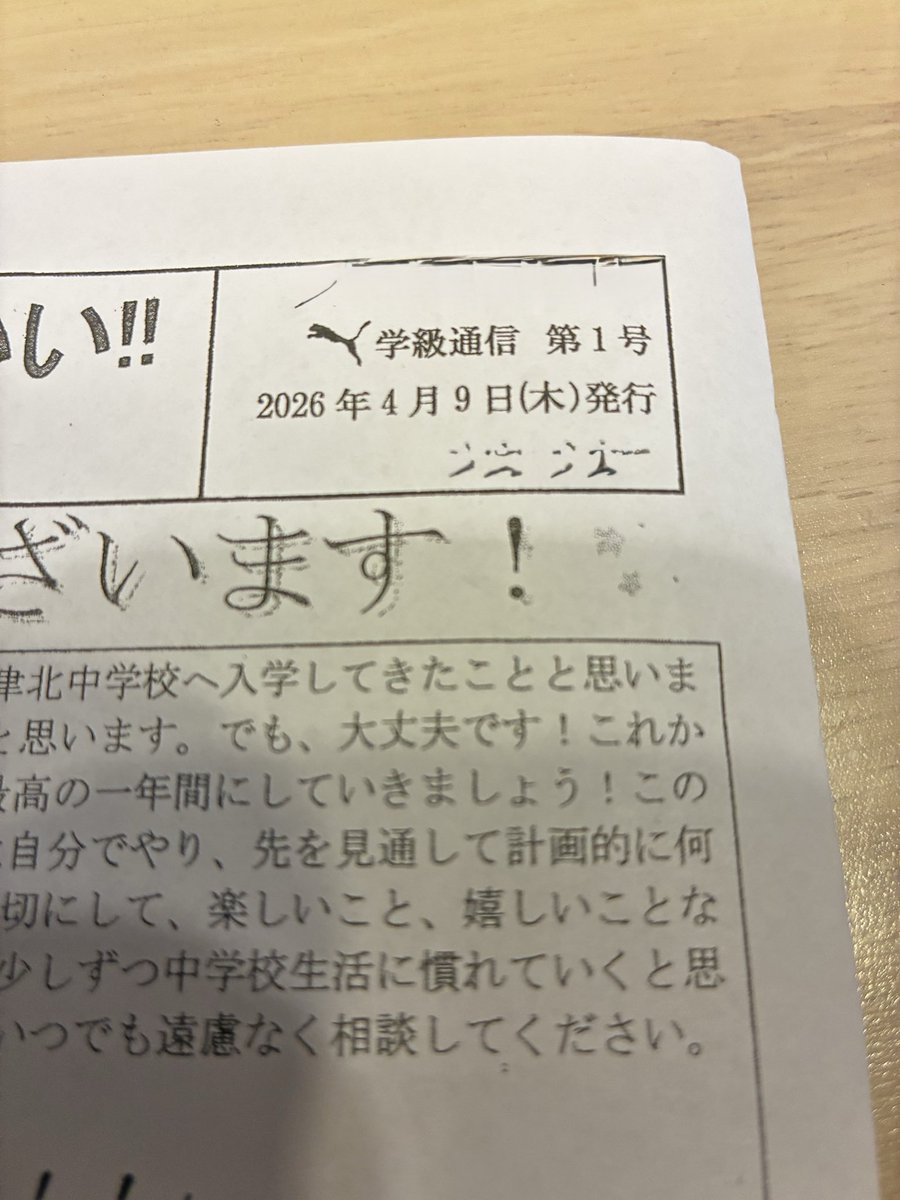 い!!
学級通信 第1号
2026年4月9日(木)発行
ざいます！
津北中学校へ入学してきたことと思いま
と思います。でも、大丈夫です！これか
最高の一年間にしていきましょう！この
自分でやり、先を見通して計画的に何
切にして、楽しいこと、嬉しいことな
少しずつ中学校生活に慣れていくと思
いつでも遠慮なく相談してください。